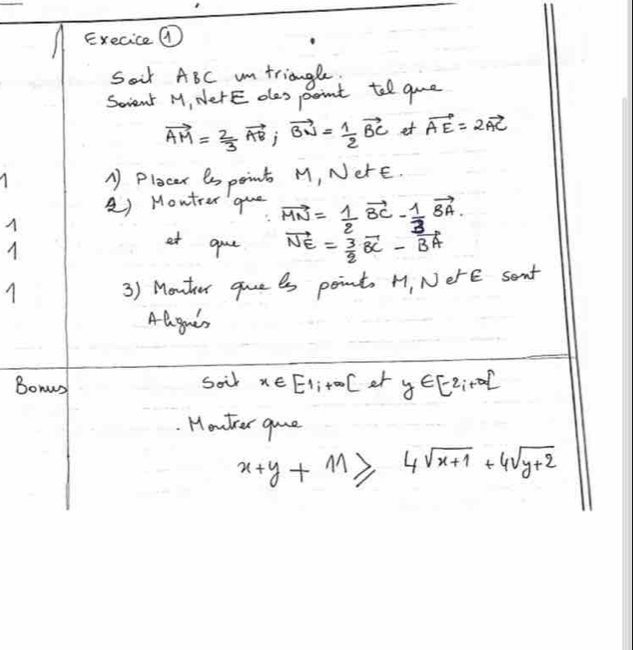 Execice ①
Soit ABC un triangle.
Soient M, N et E des point tel que
$\overrightarrow{AM} = \frac{2}{3} \overrightarrow{AB}$ ; $\overrightarrow{BN} = \frac{1}{2} \overrightarrow{BC}$ et $\overrightarrow{AE} = 2\overrightarrow{AC}$
1 1) Placer les points M, N et E.
2) Montrer que
1 $\overrightarrow{MN} = \frac{1}{2} \overrightarrow{BC} - \frac{1}{3} \overrightarrow{BA}$.
1 et que $\overrightarrow{NE} = \frac{3}{2} \overrightarrow{BC} - \overrightarrow{BA}$
1 3) Montrer que les points M, N et E sont
Alignés
Bonus Soit x ∈ [-1; +∞[ et y ∈ [-2; +∞[
. Montrer que
x + y + 11 ⩾ 4√(x+1) + 4√(y+2)